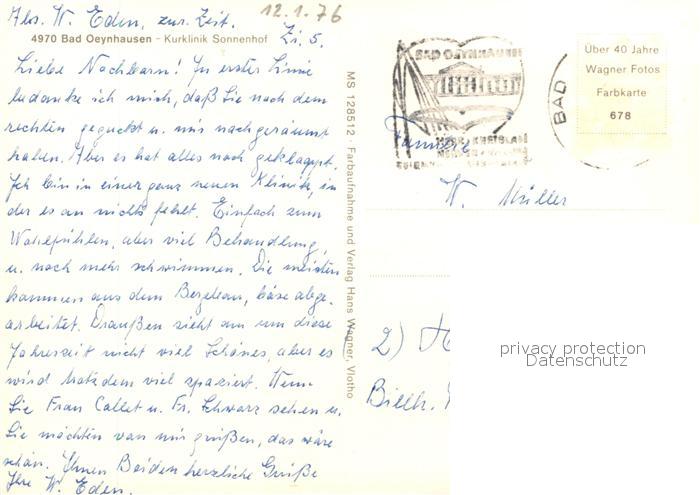 Abs. W. Eden, zur. Zeit.
12.1.76
4970 Bad Oeynhausen - Kurklinik Sonnenhof
Zi. 5.
Liebe Nachbarn! In erster Linie
bedanke ich mich, daß Sie nach dem
rechten geguckt u. mir nachgeräumt
haben. Aber es hat alles noch geklappt.
Ich bin in einer ganz neuen Klinik, in
der es an nichts fehlt. Einfach zum
Wohlfühlen, aber viel Behandlung,
u. noch mehr schwimmen. Die meisten
kommen aus dem Bergbau, böse abge-
arbeitet. Draußen sieht am um diese
Jahreszeit nicht viel Schönes, aber es
wird trotzdem viel spaziert. Wenn
Sie Frau Callet u. Fr. Schwarz sehen u.
Sie möchten von mir grüßen, das wäre
schön. Ihnen Beiden herzliche Grüße
Ihre W. Eden.
MS 128512 · Farbaufnahme und Verlag Hans Wagner, Vlotho
BAD OEYNHAUSEN
BAD
Über 40 Jahre
Wagner Fotos
Farbkarte
678
Familie
W. Müller
2) H
Billh.
privacy protection
Datenschutz